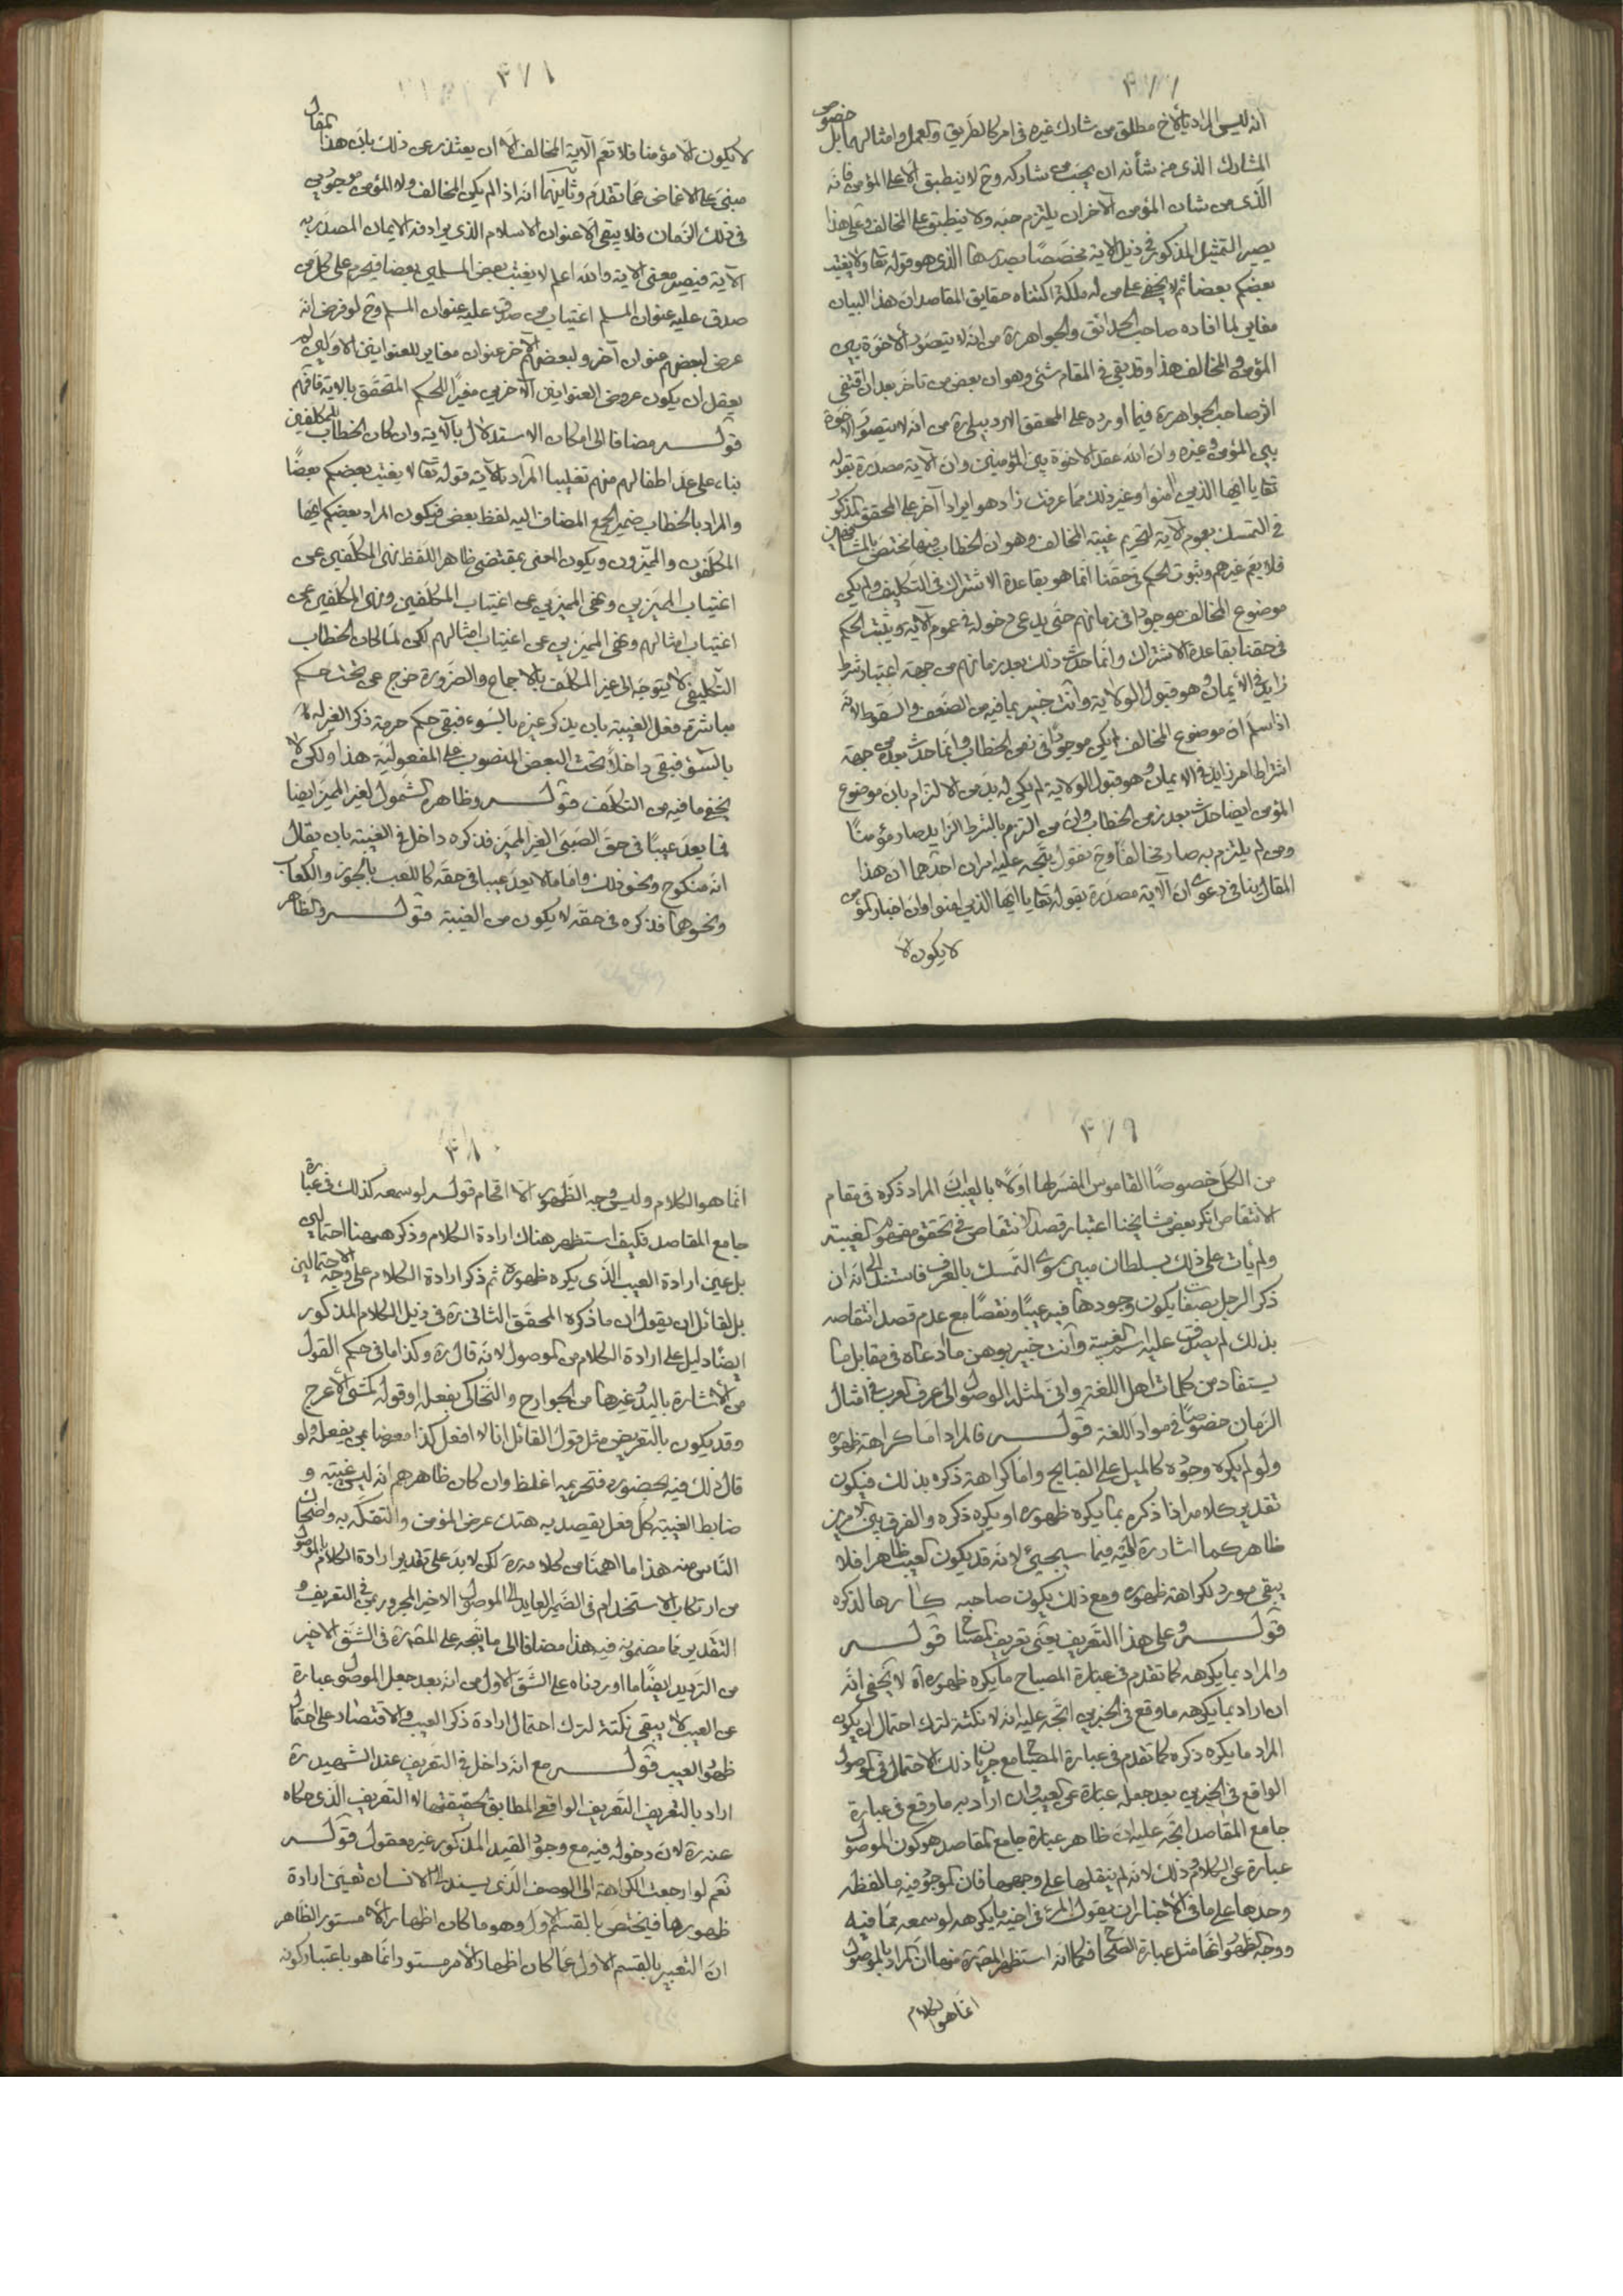 ٣٧٧
انه ليس المراد بالاخ مطلق من شارك غيره فى امر كالطريق والعمل وامثالهما بل خصوص
المشارك الذى من شأنه ان يحب من شاركه وح لا ينطبق الا على المؤمن فانه
الذى من شان المؤمن الاخر ان يلتزم حبه ولا ينطبق على المخالف وعلى هذا
يصير التمثيل المذكور فى ذيل الاية مخصصًا بصدرها الذى هو قوله تعا ولا يغتب
بعضكم بعضا ثم لا يخفى على من له ملكة اكتناه حقايق المقاصد ان هذا البيان
مغاير لما افاده صاحب الحدائق والجواهر ره من انه لا يتصور الاخوة بين
المؤمن والمخالف هذا وقد بقى فى المقام شئ وهو ان بعض من تاخر بعد ان اقتفى
اثر صاحب الجواهر ره فيما اورده على المحقق الاردبيلى ره من انه لا يتصور الاخوة
بين المؤمن وغيره وان الله عقد الاخوة بين المؤمنين وان الاية مصدرة بقوله
تعا يا ايها الذين امنوا وغير ذلك مما عرفت زاد هو ايرادا آخر على المحقق المذكور
فى التمسك بعموم الاية لتحريم غيبة المخالف وهو ان الخطاب فيها مختص بالمشافهين
فلا يعم غيرهم وثبوت الحكم فى حقنا انما هو بقاعدة الاشتراك فى التكليف ولم يكن
موضوع المخالف موجودا فى زمانهم حتى يدعى دخوله فى عموم الاية ويثبت الحكم
فى حقنا بقاعدة الاشتراك وانما حدث ذلك بعد زمانهم من جهة اعتبار شرط
زايد فى الايمان وهو قبول الولاية وانت خبير بما فيه من الضعف والسقوط لانه
اذا سلم ان موضوع المخالف لم يكن موجودا فى زمن الخطاب وانما حدث بعده من جهة
اشتراط امر زايد فى الايمان وهو قبول الولاية لم يكن له بد من الالتزام بان موضوع
المؤمن ايضا حدث بعد زمن الخطاب وان من التزم بالشرط الزايد صار مؤمنًا
ومن لم يلتزم به صار مخالفًا وح نقول يتجه عليه امران احدهما ان هذا
المقال ينافى دعوى ان الاية مصدرة بقوله تعا يا ايها الذين امنوا وان اخبار المؤمن
لا يكون الا
٣٧٨
لا يكون الا مؤمنا فلا تعم الاية المخالف الا ان يعتذر عن ذلك بان هذا المقال
مبنى على الاغماض عما تقدم وثانيهما انه اذا لم يكن المخالف ولا المؤمن موجودين
فى ذلك الزمان فلا يبقى الا عنوان الاسلام الذى يرادفه الايمان المصدر به
الاية فيصير معنى الاية والله اعلم لا يغتب بعض المسلمين بعضا فيحرم على كل من
صدق عليه عنوان المسلم اغتياب من صدق عليه عنوان المسلم وح لو فرض انه
عرض لبعضهم عنوان آخر ولبعضهم الاخر عنوان مغاير للعنوانين الاولين لم
يعقل ان يكون عروض العنوانين الاخرين مغيرًا للحكم المتحقق بالاية فافهم
قوله مضافا الى امكان الاستدلال بالاية وان كان الخطاب للمكلفين
بناء على عد اطفالهم منهم تغليبا المراد بالاية قوله تعا لا يغتب بعضكم بعضًا
والمراد بالخطاب ضمير الجمع المضاف اليه لفظ بعض فيكون المراد ببعضكم ايها
المكلفون والمميزون ويكون المعنى بمقتضى ظاهر اللفظ نهى المكلفين عن
اغتياب المميزين ونهى المميزين عن اغتياب المكلفين ونهى المكلفين عن
اغتياب امثالهم ونهى المميزين عن اغتياب امثالهم لكن لما كان الخطاب
التكليفى لا يتوجه الى غير المكلف بالاجماع والضرورة خرج عن تحت حكم
مباشرة فعل الغيبة بان يذكر غيره بالسوء فبقى حكم حرمة ذكر الغير له
بالسوء فبقى داخلًا تحت البعض المنصوب على المفعولية هذا ولكن لا
يخفى ما فيه من التكلف قوله وظاهره الشمول لغير المميز ايضا
فما يعد عيبًا فى حق الصبى الغير المميز فذكره داخل فى الغيبة بان يقال
انه منكوح ونحو ذلك واما ما لا يعد عيبا فى حقه كاللعب بالجوز والكعاب
ونحوهما فذكره فى حقه لا يكون من الغيبة قوله والظاهر
٣٧٩
من الكل خصوصًا القاموس المفسر لها اولًا بالعيب ان المراد ذكره فى مقام
الانتقاص انكر بعض مشايخنا اعتبار قصد الانتقاص فى تحقق مفهوم الغيبة
ولم يأت على ذلك بسلطان مبين سوى التمسك بالعرف فاستند الى انه ان
ذكر الرجل بصفات يكون وجودها فيه عيبًا ونقصًا مع عدم قصد انتقاصه
بذلك لم يصدق عليه اسم الغيبة وانت خبير بوهن ما ادعاه فى مقابل ما
يستفاد من كلمات اهل اللغة وانى لمثله الوصول الى عرف العرب فى امثال
الزمان خصوصًا فى مواد اللغة قوله فالمراد اما كراهة ظهوره
ولو لم يكره وجوده كالميل على القبايح واما كراهة ذكره بذلك فيكون
تقدير كلامه اذا ذكره بما يكره ظهوره او يكره ذكره والفرق بين الامرين
ظاهر كما اشار ره اليه فيما سيجئ لانه قد يكون العيب ظاهرا فلا
يبقى مورد لكراهة ظهوره ومع ذلك يكون صاحبه كارها لذكره
قوله وعلى هذا التعريف يعنى تعريف المصباح قوله
والمراد بما يكرهه كما تقدم فى عبارة المصباح ما يكره ظهوره آه لا يخفى انه
ان اراد بما يكرهه ما وقع فى الخبرين اتجه عليه انه لا نكتة لترك احتمال ان يكون
المراد ما يكره ذكره كما تقدم فى عبارة المصباح مع جريان ذلك الاحتمال فى الموصول
الواقع فى الخبرين بعد جعله عبارة عن العيب وان اراد به ما وقع فى عبارة
جامع المقاصد اتجه عليه ان ظاهر عبارة جامع المقاصد هو كون الموصول
عبارة عن الكلام وذلك لانه لم ينقلها على وجهها فان الموجود فيه ما لفظه
وحدها على ما فى الاخبار ان يقول المرء فى اخيه ما يكرهه لو سمعه مما فيه
ووجه الظهور انها مثل عبارة الصحاح فكما انه استظهر المص ره منها ان المراد بالموصول
انما هو الكلام
٣٨٠
انما هو الكلام وليس وجه الظهور الا اقحام قوله لو سمعه كذلك فى عبارة
جامع المقاصد فكيف استظهر هناك ارادة الكلام وذكر هيهنا احتمالين
بل عين ارادة العيب الذى يكره ظهوره ثم ذكر ارادة الكلام على وجه الاحتمالين
بل لقائل ان يقول ان ما ذكره المحقق الثانى ره فى ذيل الكلام المذكور
ايضًا دليل على ارادة الكلام من الموصول لانه قال ره وكذا ما فى حكم القول
من الاشارة باليد وغيرها من الجوارح والتحاكى بفعله او قوله كمشى الاعرج
وقد يكون بالتعريض مثل قول القائل انا لا افعل كذا معرضا بمن يفعله ولو
قال ذلك فيه بحضوره فتحريمه اغلظ وان كان ظاهرهم انه ليس غيبة و
ضابط الغيبة كل فعل يقصد به هتك عرض المؤمن والتفكه به واضحاك
الناس منه هذا ما اهمنا من كلامه ره لكن لا بد على تقدير ارادة الكلام بالموصول
من ارتكاب الاستخدام فى الضمير العايد الى الموصول الاخير المجرور بمن فى التعريف و
التقدير مما مضمونه فيه هذا مضافا الى ما يتجه على المص ره فى الشق الاخير
من الترديد ايضًا ما اوردناه على الشق الاول من انه بعد جعل الموصول عبارة
عن العيب لا يبقى نكتة لترك احتمال ارادة ذكر العيب والاقتصار على احتمال
ظهور العيب قوله مع انه داخل فى التعريف عند الشهيد ره
اراد بالتعريف التعريف الواقعى المطابق لحقيقتها لا التعريف الذى حكاه
عنه ره لان دخوله فيه مع وجود القيد المذكور غير معقول قوله
نعم لو ارجعت الكراهة الى الوصف الذى يسند الى الانسان تعين ارادة
ظهورها فيختص بالقسم الاول وهو ما كان اظهارا لامر مستور الظاهر
ان التعبير بالقسم الاول عما كان اظهارا لامر مستور انما هو باعتبار كونه